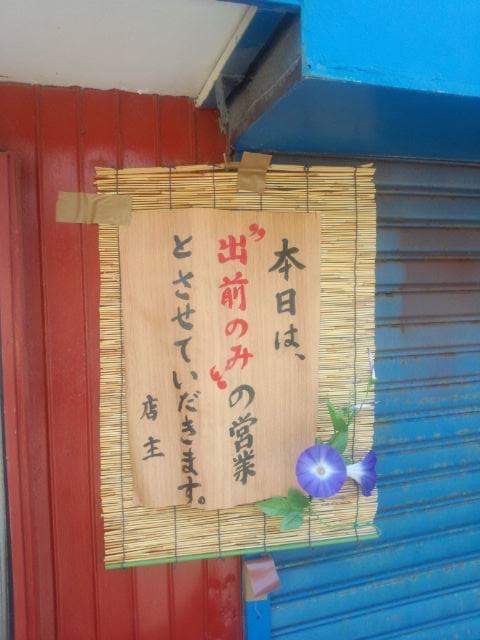 本日は、
〝出前のみ〟の営業
とさせていだきます。
店主